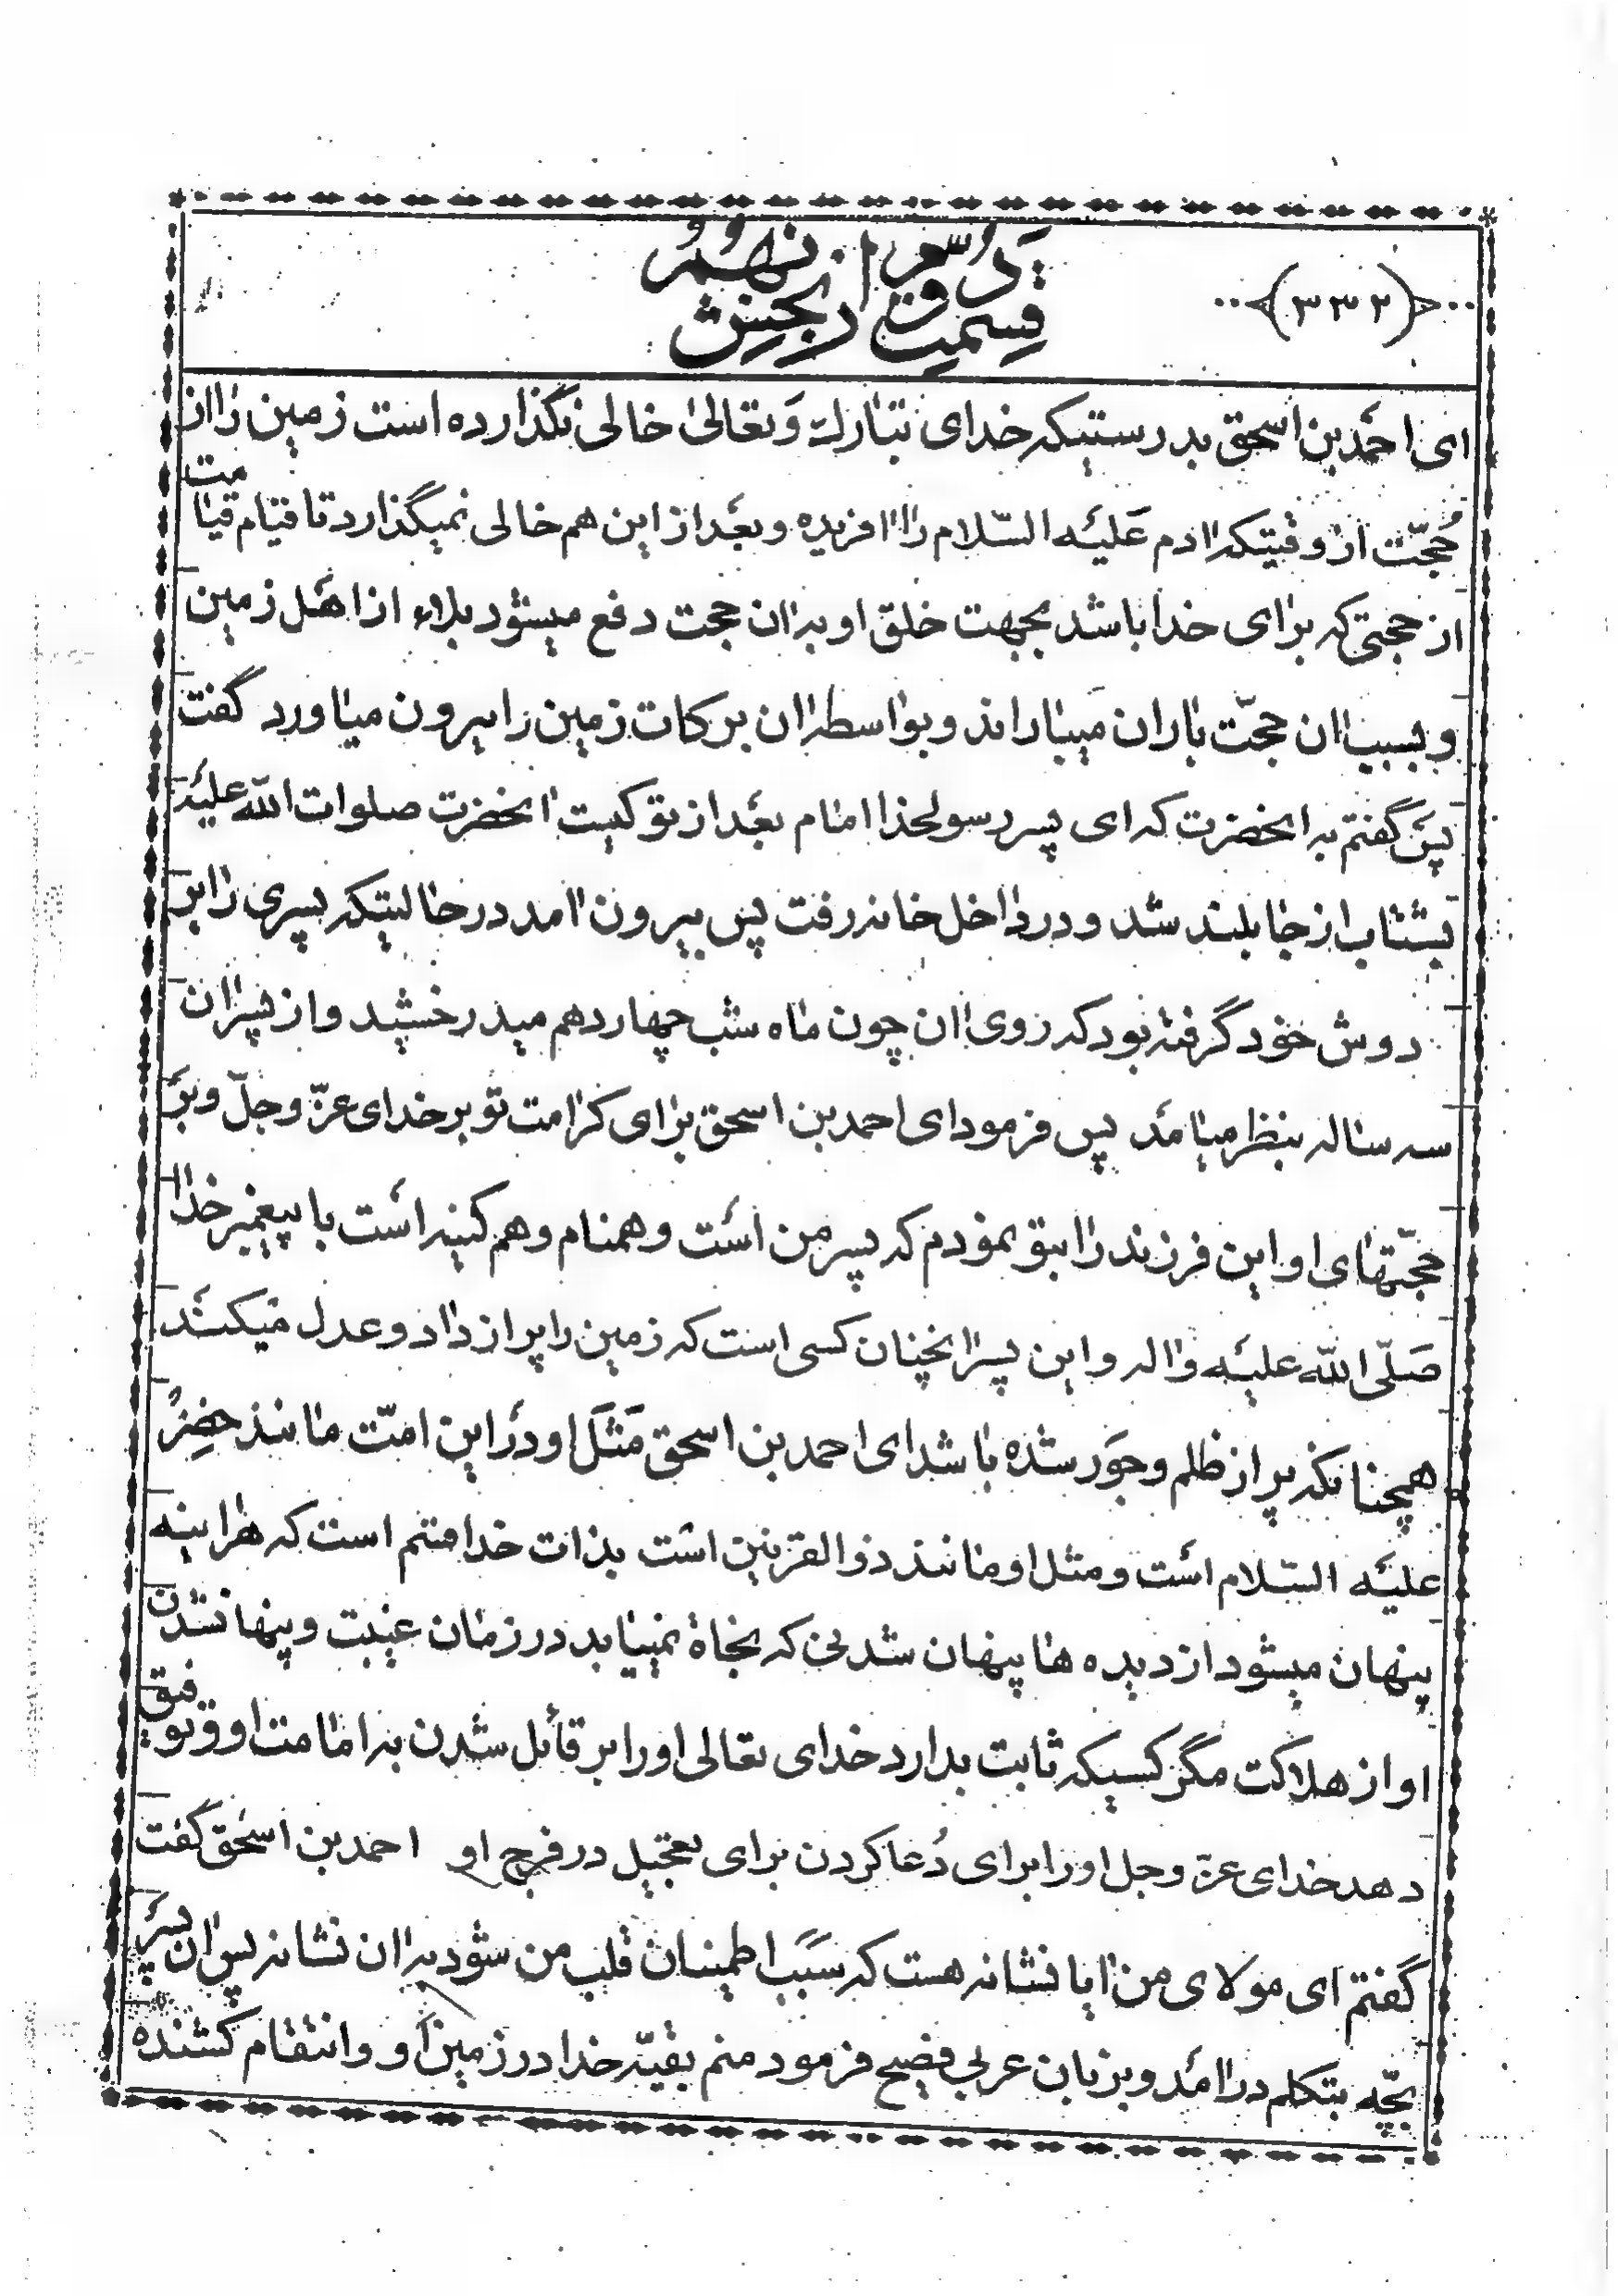 ﴿۳۳۲﴾
قسمت دوم از بخش نهم
ای احمد بن اسحق بدرستیکه خدای تبارك و تعالی خالی نگذارده است زمین را از
حجّت از وقتیکه ادم علیه السّلام را افریده و بعد از این هم خالی نمیگذارد تا قیام قیامت
از حجتی که برای خدا باشد بجهت خلق او به ان حجت دفع میشود بلاء از اهل زمین
و بسبب ان حجّت باران میباراند و بواسطه ان برکات زمین را بیرون میاورد گفت
پس گفتم به انحضرت که ای پسر رسولخدا امام بعد از تو کیست انحضرت صلوات الله علیه
بشتاب از جا بلند شد و در داخل خانه رفت پس بیرون امد در حالیتکه پسری را بر
دوش خود گرفته بود که روی ان چون ماه شب چهاردهم میدرخشید و از پسران
سه ساله بنظر میامد پس فرمود ای احمد بن اسحق برای کرامت تو بر خدای عزّ و جلّ و بر
حجّتهای او این فرزند را بتو نمودم که پسر من است و همنام و هم کنیه است با پیغمبر خدا
صلّی الله علیه و اله و این پسر انچنان کسی است که زمین را پر از داد و عدل میکند
همچنانکه پر از ظلم و جور شده باشد ای احمد بن اسحق مثل او در این امّت مانند خضر
علیه السّلام است و مثل او مانند ذو القرنین است بذات خدا قسم است که هراینه
پنهان میشود از دیده ها پنهان شدنی که نجاة نمییابد در زمان غیبت و پنهانشدن
او از هلاکت مگر کسیکه ثابت بدارد خدای تعالی او را بر قائل شدن به امامت او و توفیق
دهد خدای عزّ و جل او را برای دُعا کردن برای تعجیل در فرج او احمد بن اسحق گفت
گفتم ای مولای من ایا نشانه هست که سبب اطمینان قلب من شود به ان نشانه پس ان پسر
بچّه بتکلم در امد و بزبان عربی فصیح فرمود منم بقیّه خدا در زمین او و انتقام کشنده